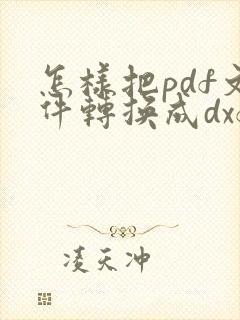 怎樣把pdf文
件轉換成dx
凌天冲